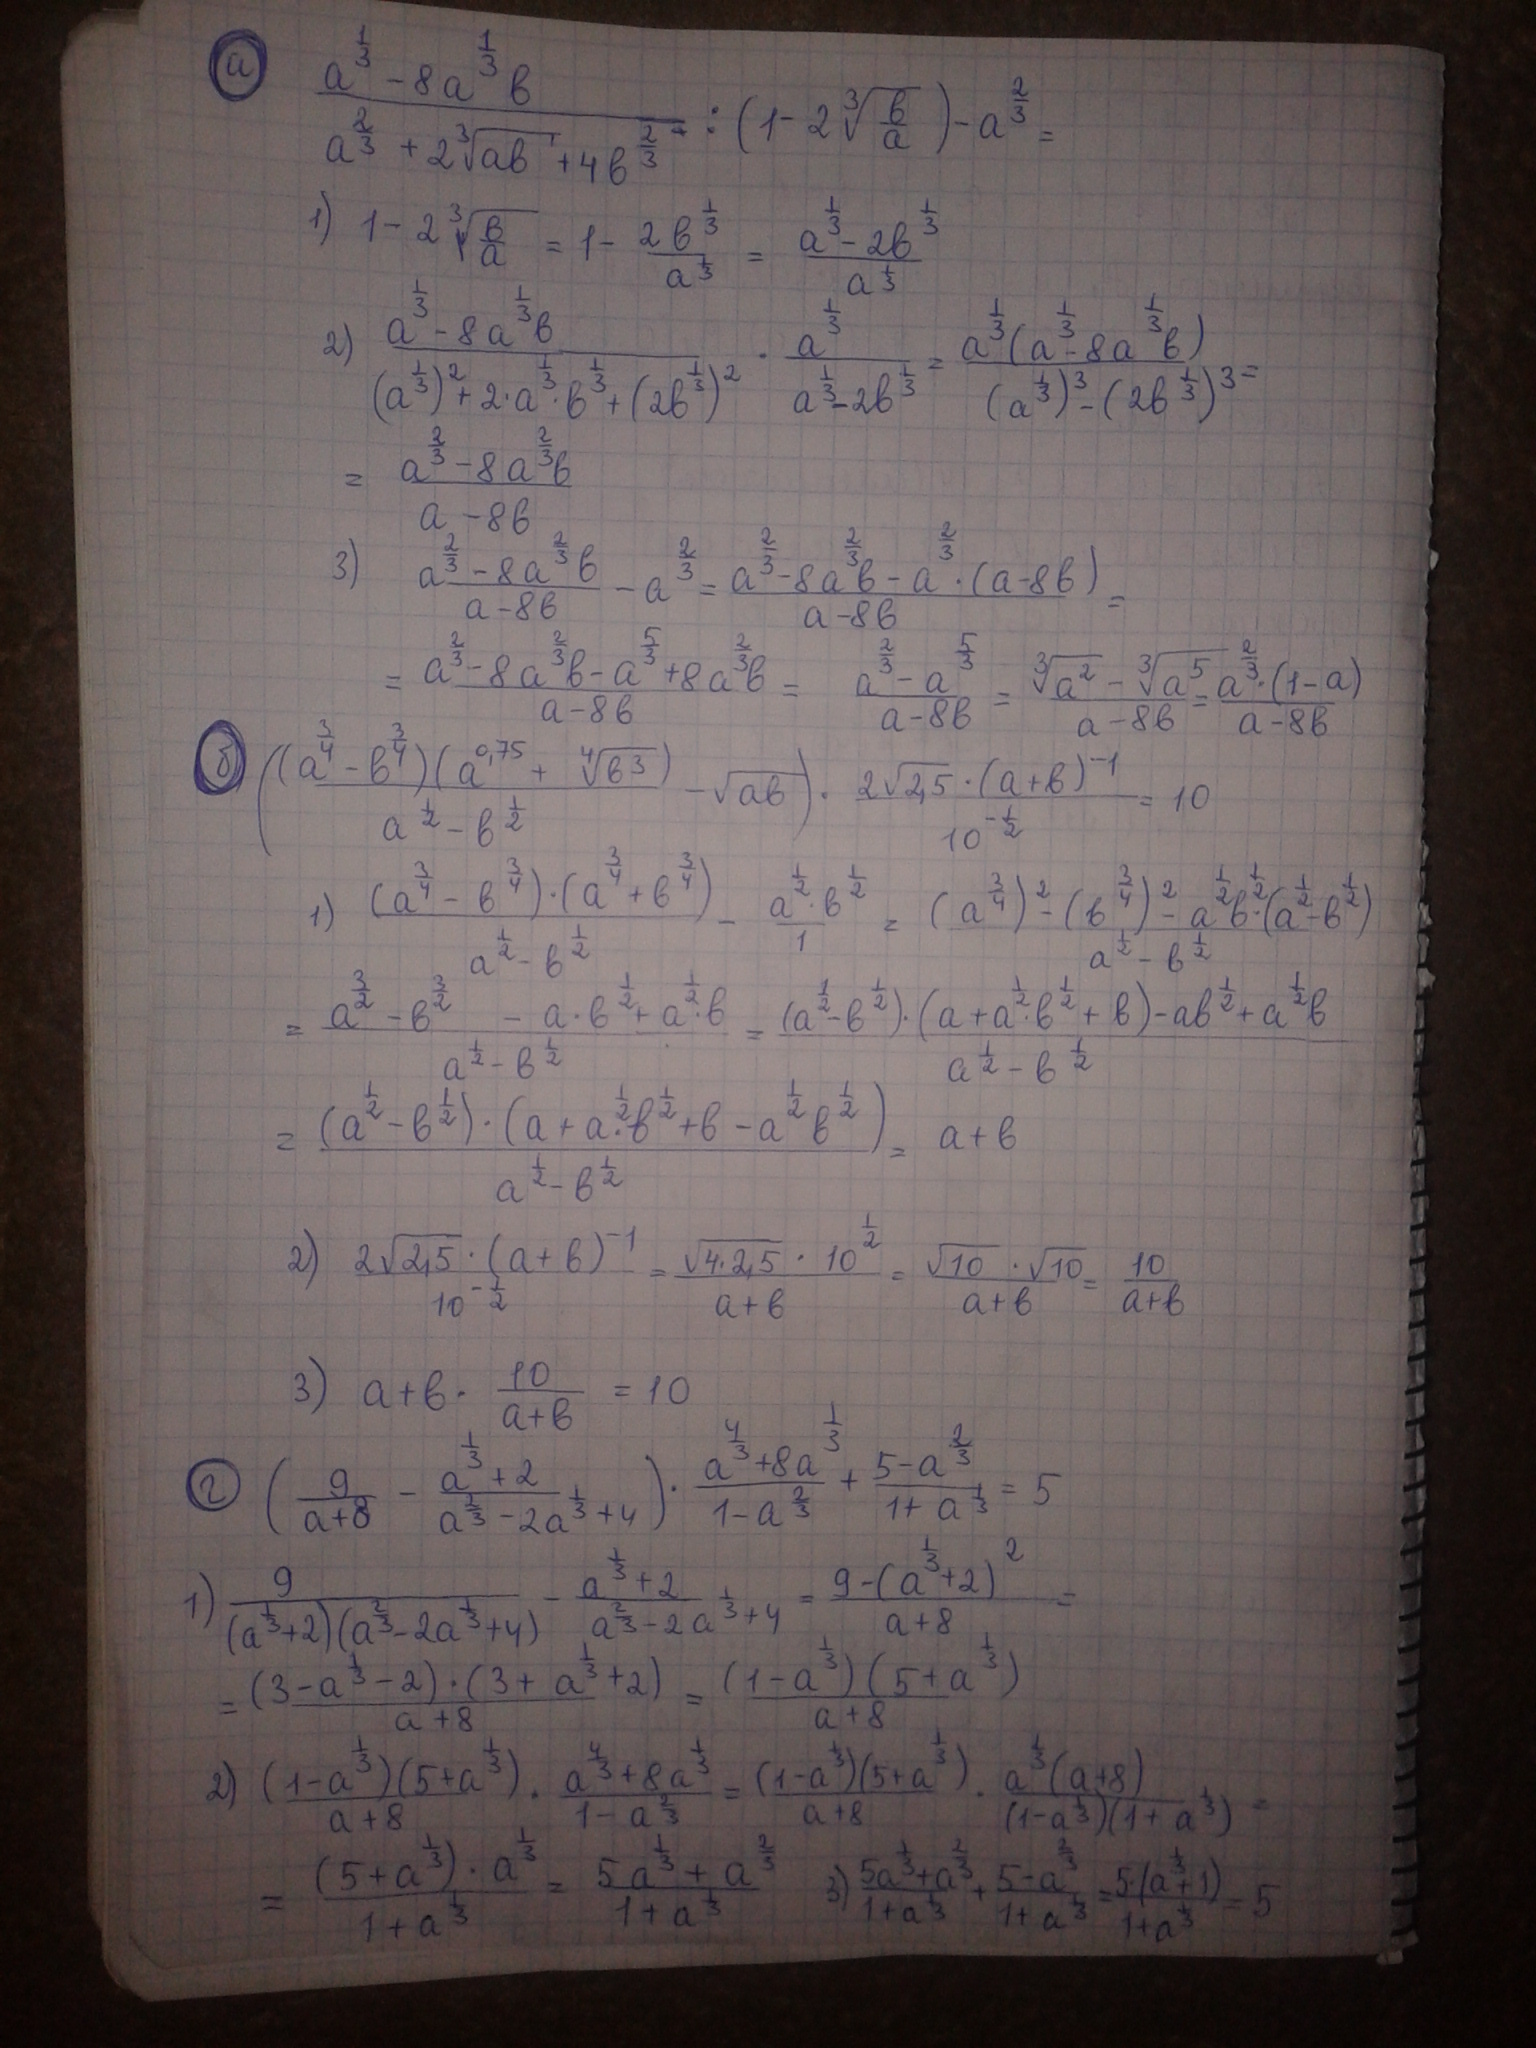 а) (a^(1/3) - 8a^(1/3)b)/(a^(2/3) + 2∛(ab) + 4b^(2/3)) : (1 - 2∛(b/a)) - a^(2/3) =
1) 1 - 2∛(b/a) = 1 - 2b^(1/3)/a^(1/3) = (a^(1/3) - 2b^(1/3))/a^(1/3)
2) (a^(1/3) - 8a^(1/3)b)/((a^(1/3))^2 + 2·a^(1/3)·b^(1/3) + (2b^(1/3))^2) · a^(1/3)/(a^(1/3) - 2b^(1/3)) = a^(1/3)(a^(1/3) - 8a^(1/3)b)/((a^(1/3))^3 - (2b^(1/3))^3) =
= (a^(2/3) - 8a^(2/3)b)/(a - 8b)
3) (a^(2/3) - 8a^(2/3)b)/(a - 8b) - a^(2/3) = (a^(2/3) - 8a^(2/3)b - a^(2/3)·(a - 8b))/(a - 8b) =
= (a^(2/3) - 8a^(2/3)b - a^(5/3) + 8a^(2/3)b)/(a - 8b) = (a^(2/3) - a^(5/3))/(a - 8b) = (∛(a^2) - ∛(a^5))/(a - 8b) = a^(2/3)·(1 - a)/(a - 8b)
б) ((a^(3/4) - b^(3/4))(a^(0,75) + ∜(b^3))/(a^(1/2) - b^(1/2)) - √(ab)) · 2√2,5·(a+b)^(-1)/10^(-1/2) = 10
1) (a^(3/4) - b^(3/4))·(a^(3/4) + b^(3/4))/(a^(1/2) - b^(1/2)) - a^(1/2)·b^(1/2)/1 = ((a^(3/4))^2 - (b^(3/4))^2 - a^(1/2)b^(1/2)·(a^(1/2) - b^(1/2)))/(a^(1/2) - b^(1/2))
= (a^(3/2) - b^(3/2) - a·b^(1/2) + a^(1/2)·b)/(a^(1/2) - b^(1/2)) = ((a^(1/2) - b^(1/2))·(a + a^(1/2)·b^(1/2) + b) - ab^(1/2) + a^(1/2)b)/(a^(1/2) - b^(1/2))
= (a^(1/2) - b^(1/2))·(a + a^(1/2)·b^(1/2) + b - a^(1/2)b^(1/2))/(a^(1/2) - b^(1/2)) = a + b
2) 2√2,5·(a+b)^(-1)/10^(-1/2) = √(4·2,5)·10^(1/2)/(a+b) = √10·√10/(a+b) = 10/(a+b)
3) a+b · 10/(a+b) = 10
г) (9/(a+8) - (a^(1/3)+2)/(a^(2/3) - 2a^(1/3) + 4)) · (a^(4/3) + 8a^(1/3))/(1 - a^(2/3)) + (5 - a^(2/3))/(1 + a^(1/3)) = 5
1) 9/((a^(1/3)+2)(a^(2/3) - 2a^(1/3) + 4)) - (a^(1/3)+2)/(a^(2/3) - 2a^(1/3) + 4) = (9 - (a^(1/3)+2)^2)/(a+8) =
= (3 - a^(1/3) - 2)·(3 + a^(1/3) + 2)/(a+8) = (1 - a^(1/3))(5 + a^(1/3))/(a+8)
2) (1 - a^(1/3))(5 + a^(1/3))/(a+8) · (a^(4/3) + 8a^(1/3))/(1 - a^(2/3)) = (1 - a^(1/3))(5 + a^(1/3))/(a+8) · a^(1/3)(a+8)/((1 - a^(1/3))(1 + a^(1/3))) =
= (5 + a^(1/3))·a^(1/3)/(1 + a^(1/3)) = (5a^(1/3) + a^(2/3))/(1 + a^(1/3)) 3) (5a^(1/3) + a^(2/3))/(1 + a^(1/3)) + (5 - a^(2/3))/(1 + a^(1/3)) = 5·(a^(1/3)+1)/(1 + a^(1/3)) = 5